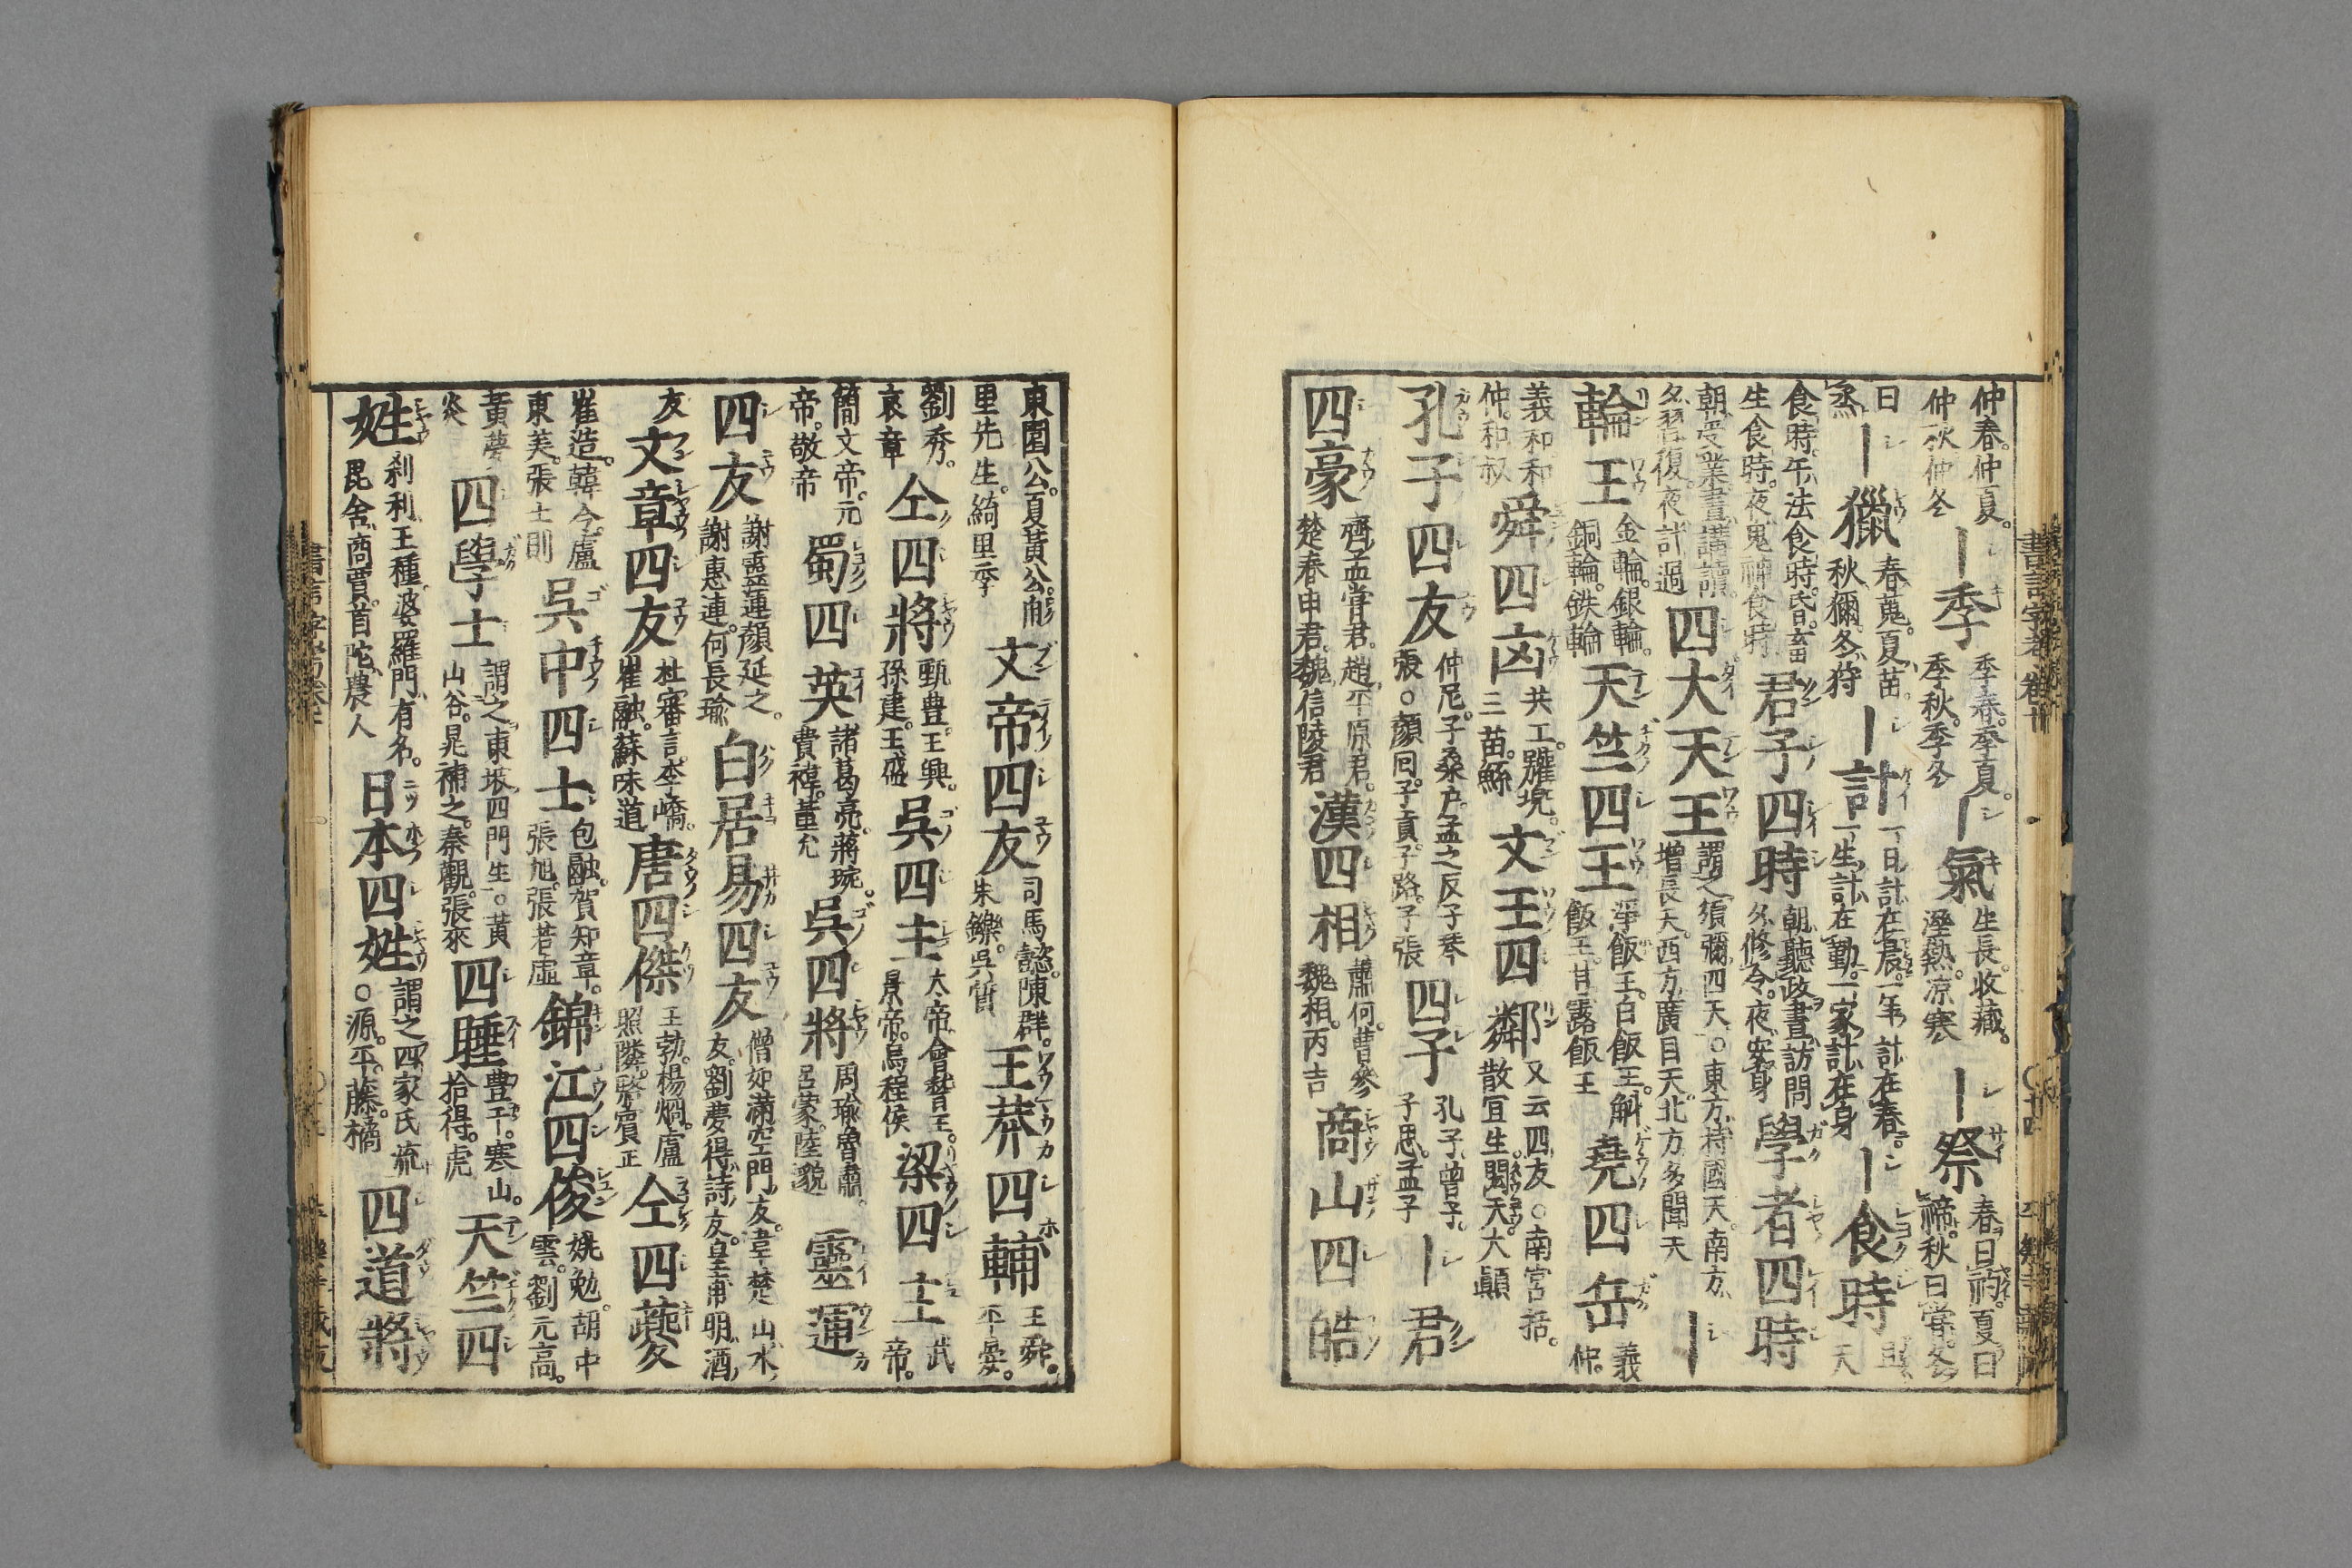 仲春。仲夏。仲秋仲冬 ｜季 季春。季夏。季秋。季冬 ｜氣 生長。收藏。溼熱。凉寒 ｜祭 春曰礿。夏曰禘。秋曰嘗。冬
曰烝 ｜獵 春蒐。夏苗。秋獮。冬狩 ｜計 一日計在晨。一年計在春。一生計在勤。一家計在身 ｜食時 旦天
食時。午法食時。昏畜生食時。夜鬼神食時 君子四時 朝聽政。晝訪問。夕修令。夜安身 學者四時
朝受業。晝講讀。夕習復。夜計過 四大天王 謂之須彌四天。○東方持國天。南方增長天。西方廣目天。北方多聞天 ｜
輪王 金輪。銀輪。銅輪。鉄輪 天竺四王 淨飯王。白飯王。斛飯王。甘露飯王 堯四岳 義仲。
義和和仲。和叔 舜四凶 共工。驩兜。三苗。鯀 文王四鄰 又云四友○南宮括。散宜生。閎夭。大顚
孔子四友 仲尼。子桑戸。孟之反子琴張。○顏回。子貢。子路。子張 四子 孔子。曾子。子思。孟子 ｜君
四豪 齊孟嘗君。趙平原君。楚春申君。魏信陵君 漢四相 蕭何。曹參。魏相。丙吉 商山四皓
東園公。夏黃公。甪里先生。綺里季 文帝四友 司馬懿。陳群。朱鑠。吳質 王莽四輔 王舜。平晏。
劉秀。哀章 仝四將 甄豊。王興。孫建。王盛 吳四主 大帝。會稽王。景帝。烏程侯 梁四主 武帝。
簡文帝。元帝。敬帝 蜀四英 諸葛亮。蔣琬。費褘。董允 吳四將 周瑜。魯肅。呂蒙。陸遜 靈運
四友 謝靈運顏延之。謝惠連。何長瑜 白居易四友 僧如滿空門友。韋楚山水友。劉夢得詩友。皇甫明酒
友 文章四友 杜審言。李嶠。崔融。蘇味道 唐四傑 王勃。楊烱。盧照隣。駱賓王 仝四夔
崔造。韓今。盧東美。張士則 吳中四士 包融。賀知章。張旭。張若虛 錦江四俊 姚勉。胡中雲。劉元高。
黃夢炎 四學士 謂之東坡四門生。○黃山谷。晁補之。秦觀。張來 四睡 豊干。寒山。拾得。虎 天竺四
姓 刹利王種。婆羅門有名。毘舍商賈。首陀農人 日本四姓 謂之四家氏流○源。平。藤。橘 四道將